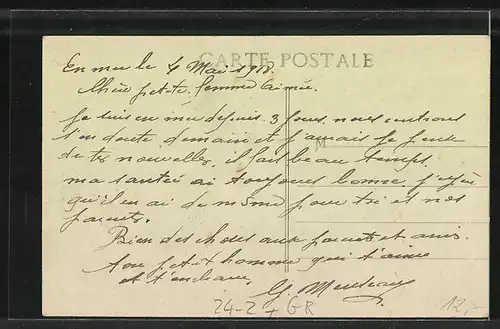 CARTE POSTALE
En mer le 4 Mai 1918.
Chère petite femme aimée.
Je suis en mer depuis 3 jours nous rentrons
s'en doute demain et j'aurais je pense
M
de tes nouvelles, il fais beau temps,
ma santée ai toujours bonne, j'espère
qu'il en ai de même pour toi et nos
parents.
Bien des choses aux parents et amis.
Ton petit homme qui t'aime
et t'embrasse
G.
24-2 GR
12,-